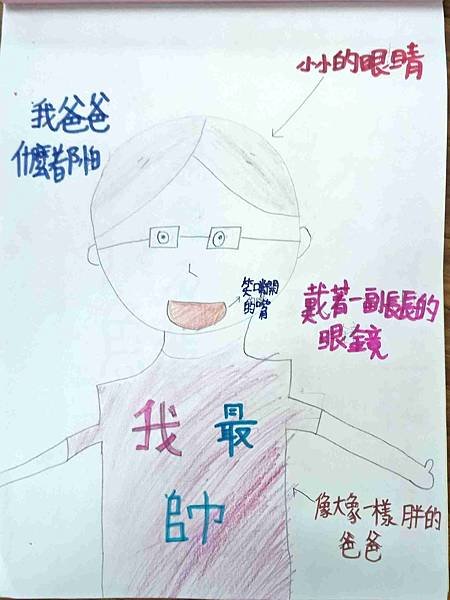 小小的眼睛
我爸爸
什麼都怕
笑嘴開
的嘴
戴著一副長長的
眼鏡
我 最
帥
像大象一樣胖的
爸爸